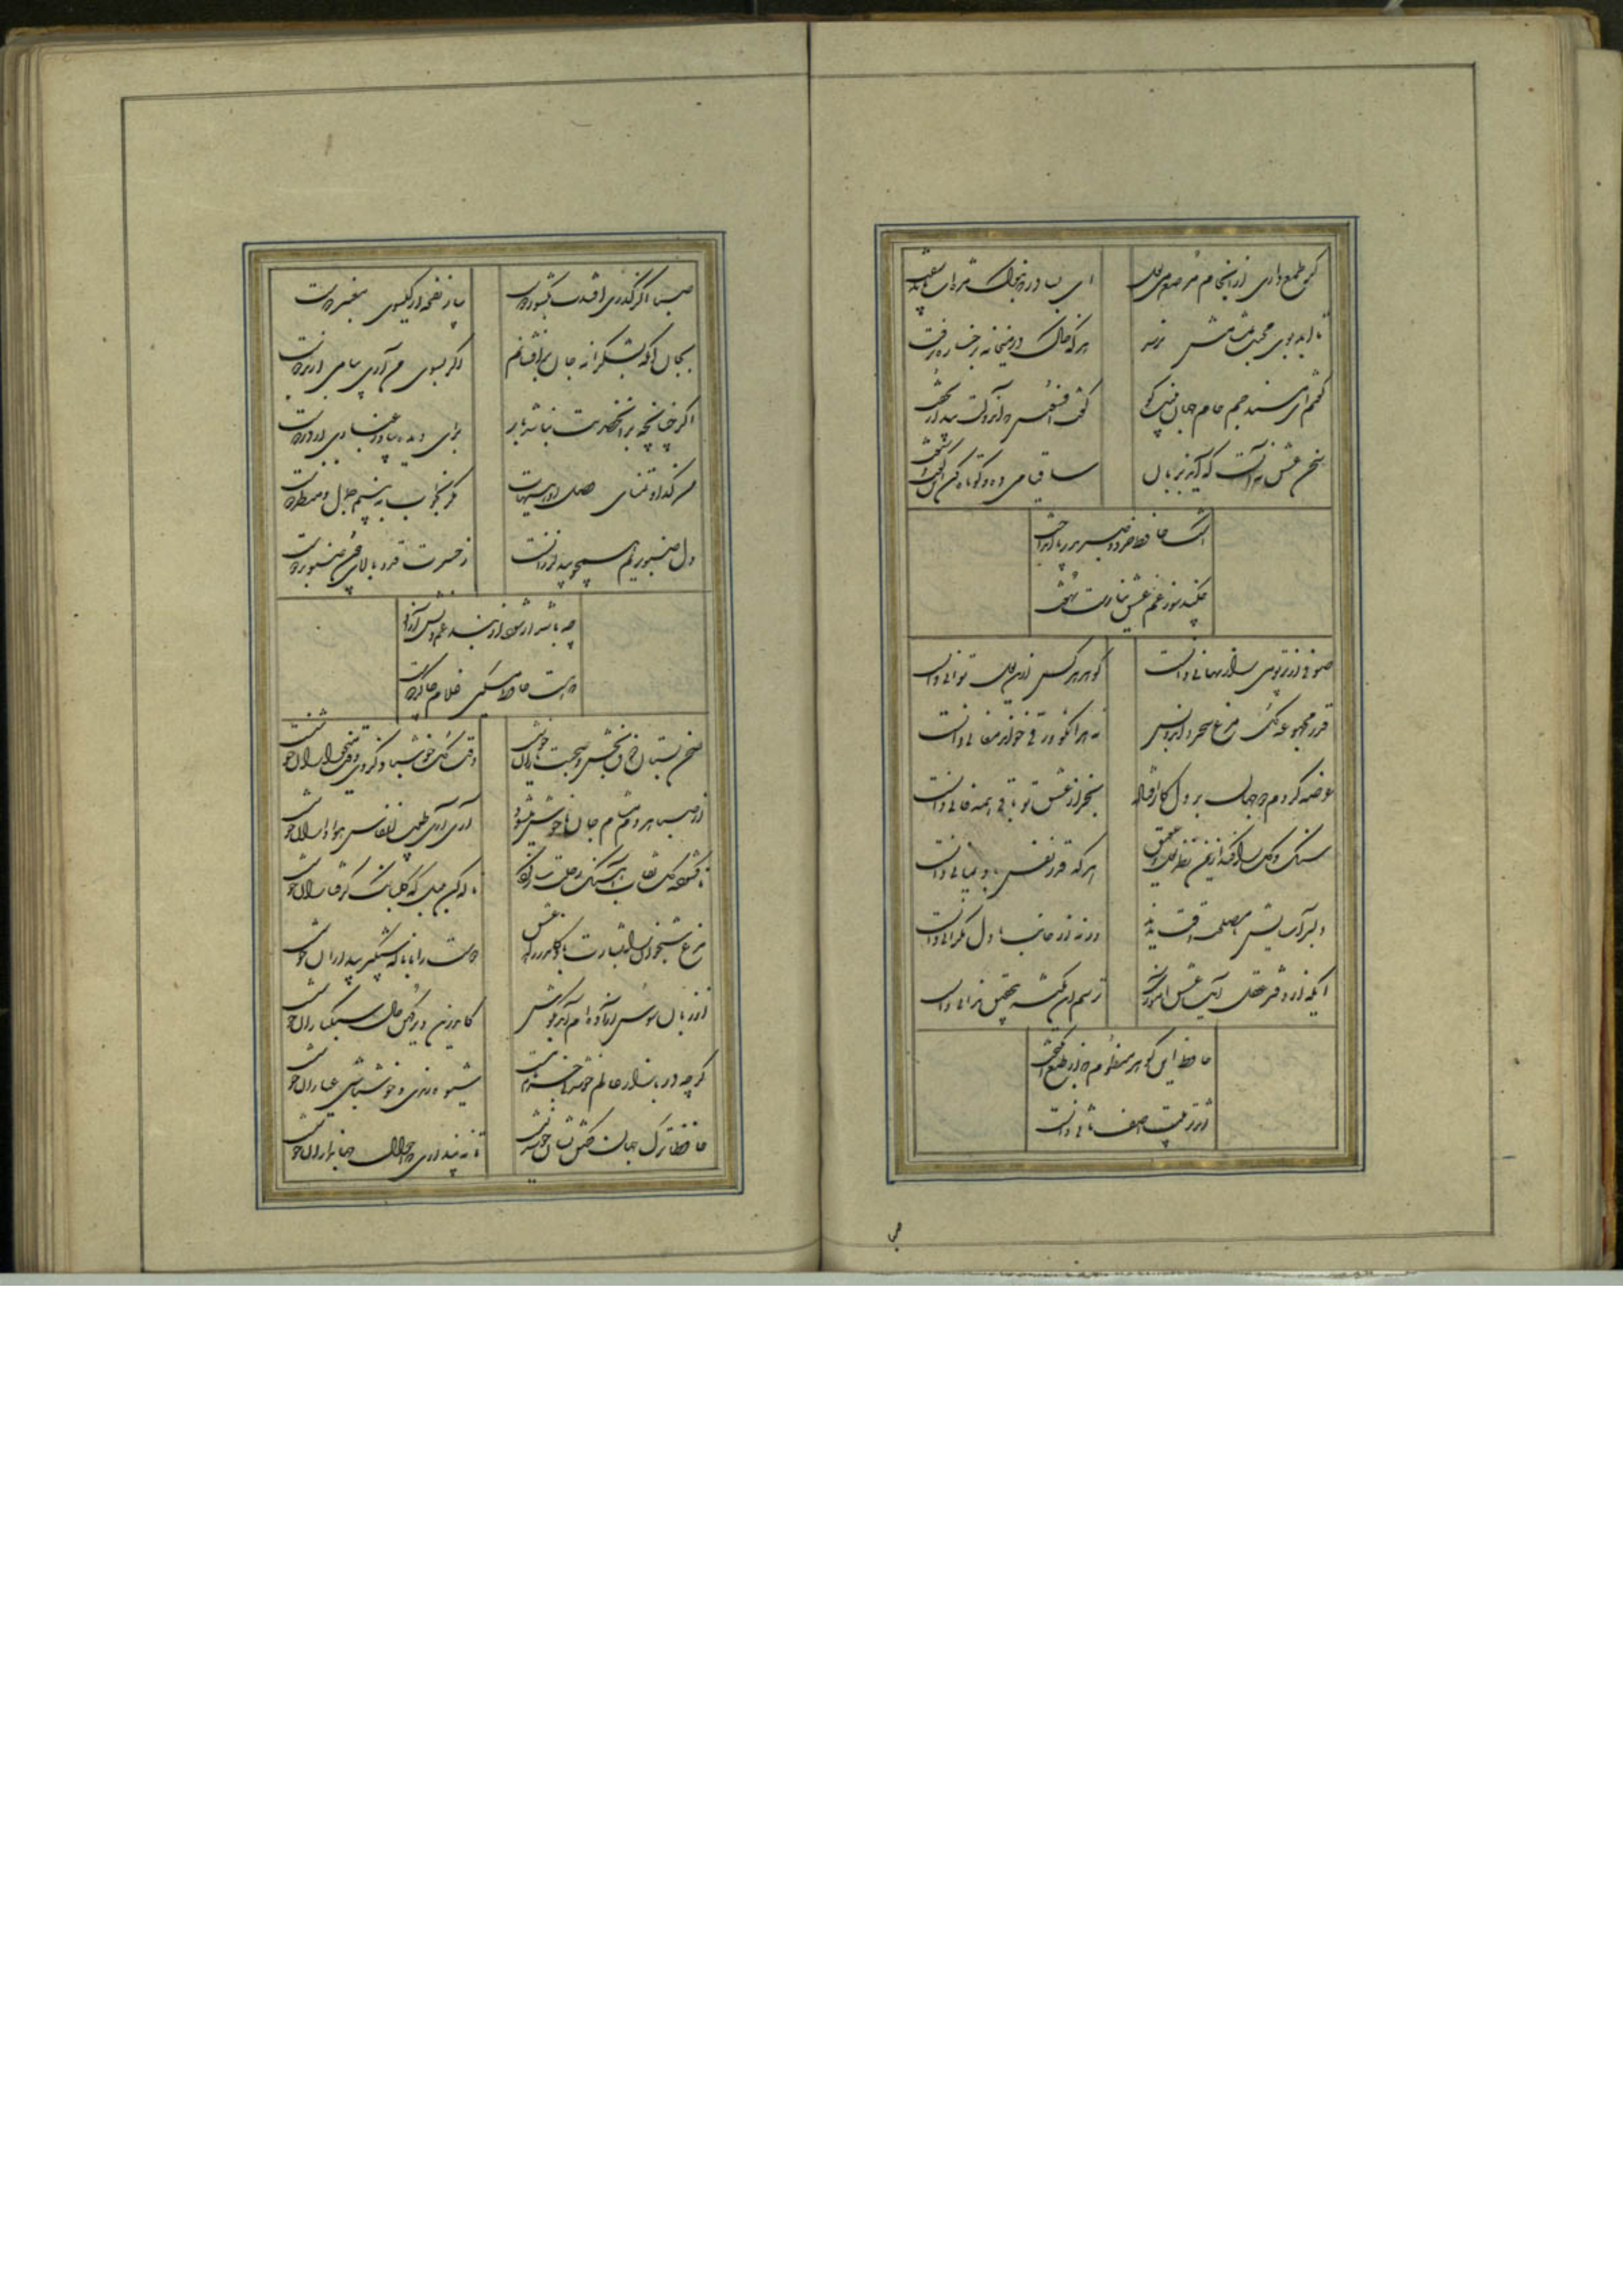 گر طمع داری از آن جام مرصع می لعل
ای بسا در که بنوک مژه ات باید سفت
تا ابد بوی محبت بمشامش نرسد
هر که خاک در میخانه برخساره نرفت
گفتم ای مسند جم جام جهان بینت کو
گفت افسوس که آن دولت بیدار بخفت
سخن عشق نه آنست که آید بزبان
ساقیا می ده و کوتاه کن این گفت و شنفت
اشک حافظ خرد و صبر بدریا انداخت
چکند سوز غم عشق نیارست نهفت
صوفی از پرتو می راز نهانی دانست
گوهر هر کس ازین لعل توانی دانست
قدر مجموعه گل مرغ سحر داند و بس
که نه هر کو ورقی خواند معانی دانست
عرضه کردم دو جهان بر دل کار افتاده
بجز از عشق تو باقی همه فانی دانست
سنگ و گل را کند از یمن نظر لعل و عقیق
هر که قدر نفس باد یمانی دانست
دلبر آسایش ما مصلحت وقت ندید
ورنه از جانب ما دل نگرانی دانست
ای که از دفتر عقل آیت عشق آموزی
ترسم این نکته بتحقیق ندانی دانست
حافظ این گوهر منظوم که از طبع انگیخت
اثر تربیت آصف ثانی دانست
صبا اگر گذری افتدت بکشور دوست
بیار نفحه از گیسوی معنبر دوست
بجان او که بشکرانه جان برافشانم
اگر بسوی من آری پیامی از بر دوست
اگر چنانچه در آن حضرتت نباشد بار
برای دیده بیاور غباری از در دوست
من گدا و تمنای وصل او هیهات
مگر بخواب به بینم جمال و منظر دوست
دل صنوبریم همچو بید لرزانست
ز حسرت قد و بالای چون صنوبر دوست
چه باشد ار شود از بند غم دلش آزاد
چو هست حافظ مسکین غلام و چاکر دوست
صحن بستان ذوق بخش و صحبت یاران خوشست
وقت گل خوش باد کز وی وقت میخواران خوشست
از صبا هر دم مشام جان ما خوش میشود
آری آری طیب انفاس هواداران خوشست
ناگشوده گل نقاب آهنگ رحلت ساز کرد
ناله کن بلبل که گلبانگ دل افکاران خوشست
مرغ شبخوان را بشارت باد کاندر راه عشق
دوست را با ناله شبهای بیداران خوشست
از زبان سوسن آزاده ام آمد بگوش
کاندرین دیر کهن کار سبکباران خوشست
گرچه در بازار عالم خوشدلی جز نام نیست
شیوه رندی و خوشباشی عیاران خوشست
حافظا ترک جهان گفتن نشان خوشدلیست
تا نه پنداری که احوال جهانداران خوشست